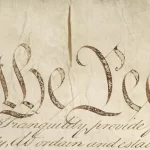 We Peo
Tranquility, provide f
ordain and estab